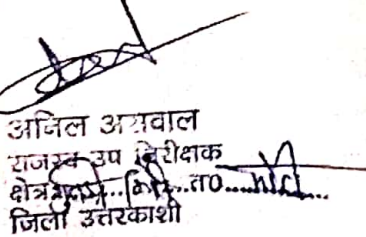 अनिल अग्रवाल
राजस्व उप निरीक्षक
क्षेत्र ... त0 ...
जिला उत्तरकाशी